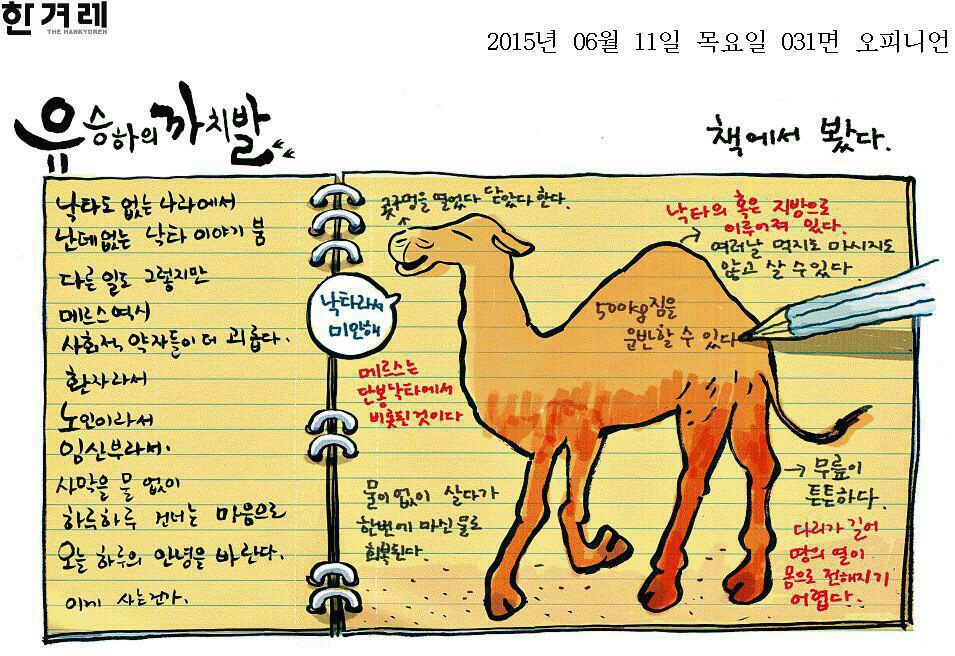 한겨레
THE HANKYOREH
2015년 06월 11일 목요일 031면 오피니언
유승하의 까치발
책에서 봤다.
낙타도 없는 나라에서
난데없는 낙타 이야기 붐
다른 일도 그렇지만
메르스 역시
사회적 약자들이 더 괴롭다.
환자라서
노인이라서
임신부라서.
사막을 물 없이
하루하루 건너는 마음으로
오늘 하루의 안녕을 바란다.
이게 사는건가.
콧구멍을 열었다 닫았다 한다.
낙타라서
미안해
메르스는
단봉낙타에서
비롯된 것이다
물이 없이 살다가
한번에 마신 물로
회복된다.
낙타의 혹은 지방으로
이루어져 있다.
여러날 먹지도 마시지도
않고 살 수 있다.
500kg 짐을
운반할 수 있다
무릎이
튼튼하다.
다리가 길어
땅의 열이
몸으로 전해지기
어렵다.